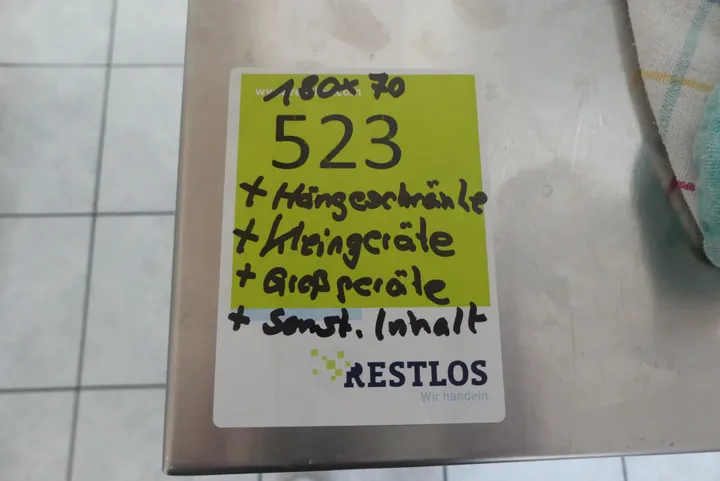 180x70
523
+ Hängeschränke
+ Kleingeräte
+ Großgeräte
+ Sonst. Inhalt
RESTLOS
Wir handeln.